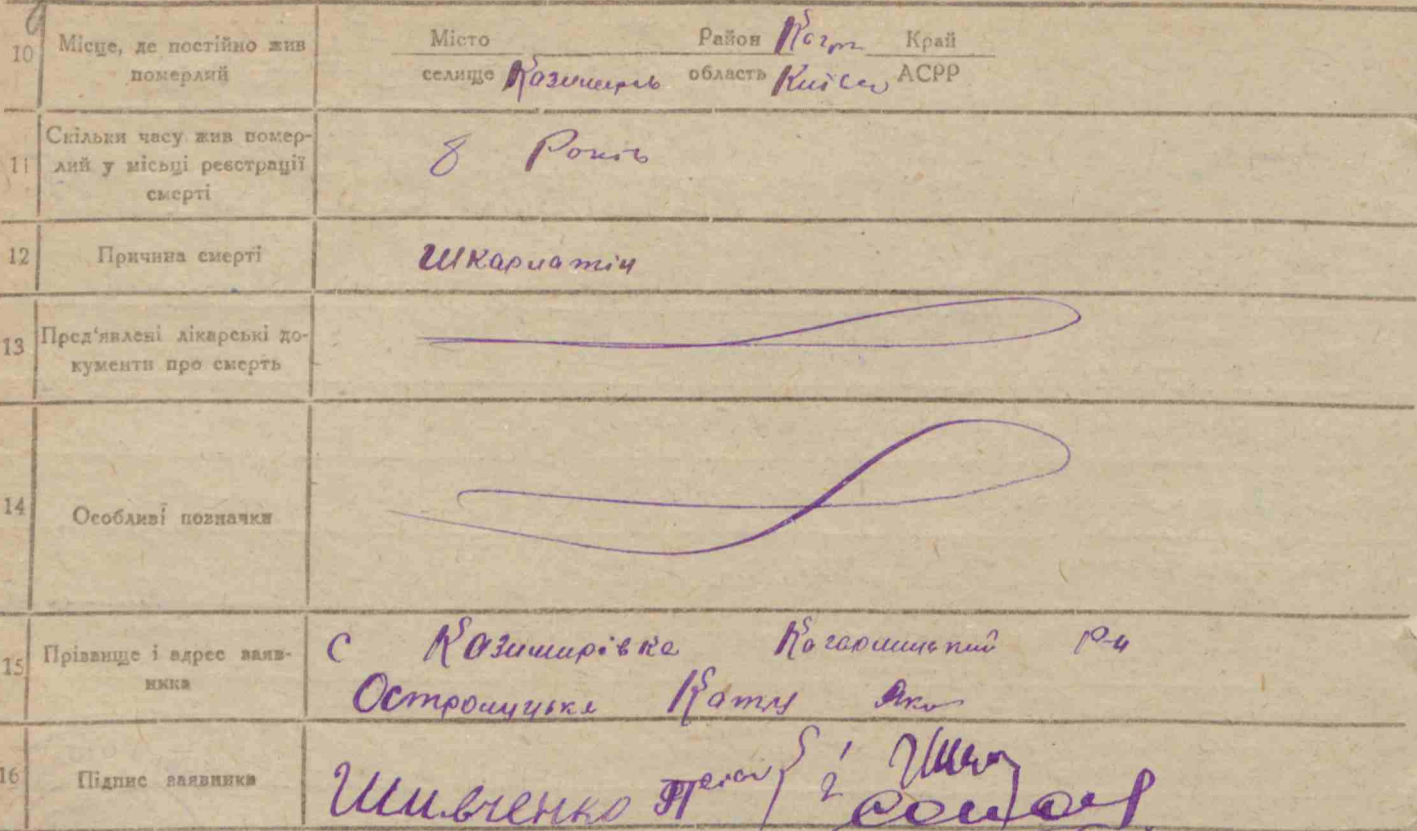 10 Місце, де постійно жив
померлий
Місто Район Кагр Край
селище Казимирів область Київськ АСРР
11 Скільки часу жив помер-
лий у місьці реєстрації
смерті
8 Років
12 Причина смерті
Шкарлатін
13 Пред'явлені лікарські до-
кументи про смерть
14 Особливі позначки
15 Прізвище і адрес заяв-
ника
С Казимирівка Кагарлицький р-н
Остролуцька
16 Підпис заявника
Шивченко